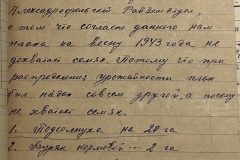 Александровский Райземотдел
о том что согласно данного нам
плана на весну 1943 года не
дохватает семян. Потому что при
распределении урожайности план
был надет совсем другой, а посему
не хватает семян.
1. Подсолнуха на 20 га
2. Буряк кормовой — 2 га